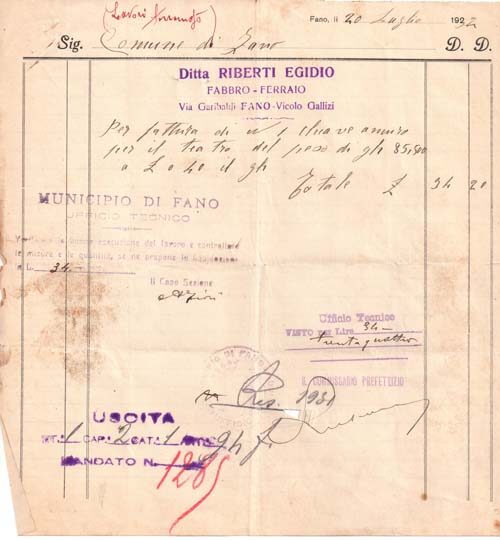 (Lavori
Fano, li 20 Luglio 1932
Sig. Comune di Fano D. D.
Ditta RIBERTI EGIDIO
FABBRO - FERRAIO
Via Garibaldi FANO - Vicolo Gallizi
Per fattura di N 1 chiave a muro
per il teatro del peso di gh 85,500
a £ 0 40 il gh
Totale £ 34 20
MUNICIPIO DI FANO
UFFICIO TECNICO
esecuzione del lavoro e controllate
le misure e le quantità, se ne propone la liquidazione
£. 34.-
Il Capo Sezione
Ufficio Tecnico
VISTO per Lire 34.-
trentaquattro
IL COMMISSARIO PREFETTIZIO
USCITA
TIT. 1 CAP. 2 CAT. 1
MANDATO N. 1285